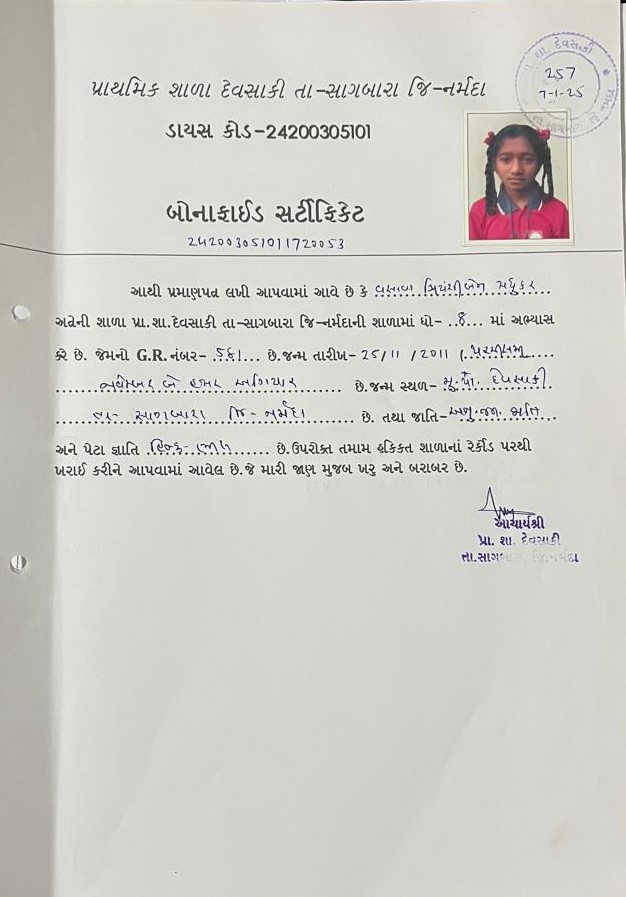 પ્રા. શા. દેવસાકી
257
7-1-25
પ્રાથમિક શાળા દેવસાકી તા-સાગબારા જિ-નર્મદા
ડાયસ કોડ-24200305101
બોનાફાઈડ સર્ટીફિકેટ
242003051011720053
આથી પ્રમાણપત્ર લખી આપવામાં આવે છે કે વસાવા પ્રિયંશીબેન મધુકર
અત્રેની શાળા પ્રા.શા.દેવસાકી તા-સાગબારા જિ-નર્મદાની શાળામાં ધો- ..8... માં અભ્યાસ
કરે છે. જેમનો G.R. નંબર- ૬૬1... છે.જન્મ તારીખ- 25/11 / 2011 (.પચ્ચીસમી....
નવેમ્બર બે હજાર અગિયાર છે.જન્મ સ્થળ- મુ.પો. દેવસાકી
તા- સાગબારા જિ-નર્મદા છે. તથા જાતિ-અનુ.જન જાતિ
અને પેટા જ્ઞાતિ હિન્દુ-ભીલ...... છે.ઉપરોક્ત તમામ હકિકત શાળાનાં રેર્કોડ પરથી
ખરાઈ કરીને આપવામાં આવેલ છે.જે મારી જાણ મુજબ ખરુ અને બરાબર છે.
આચાર્યશ્રી
પ્રા. શા. દેવસાકી
તા.સાગબારા, જિ.નર્મદા